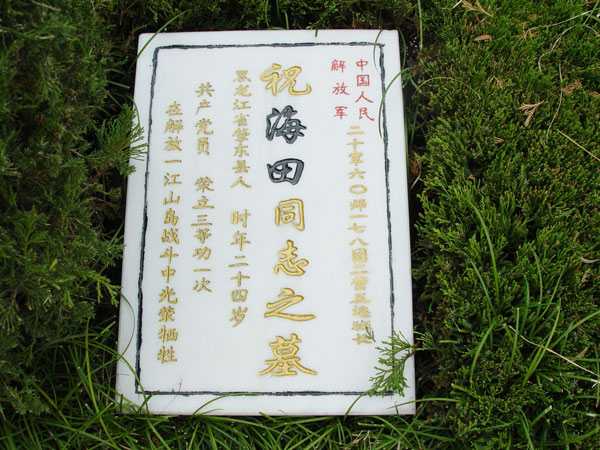 中国人民
解放军
二十军六〇师一七八团二营五连班长
祝海田同志之墓
黑龙江省肇东县人 时年二十四岁
共产党员 荣立三等功一次
在解放一江山岛战斗中光荣牺牲